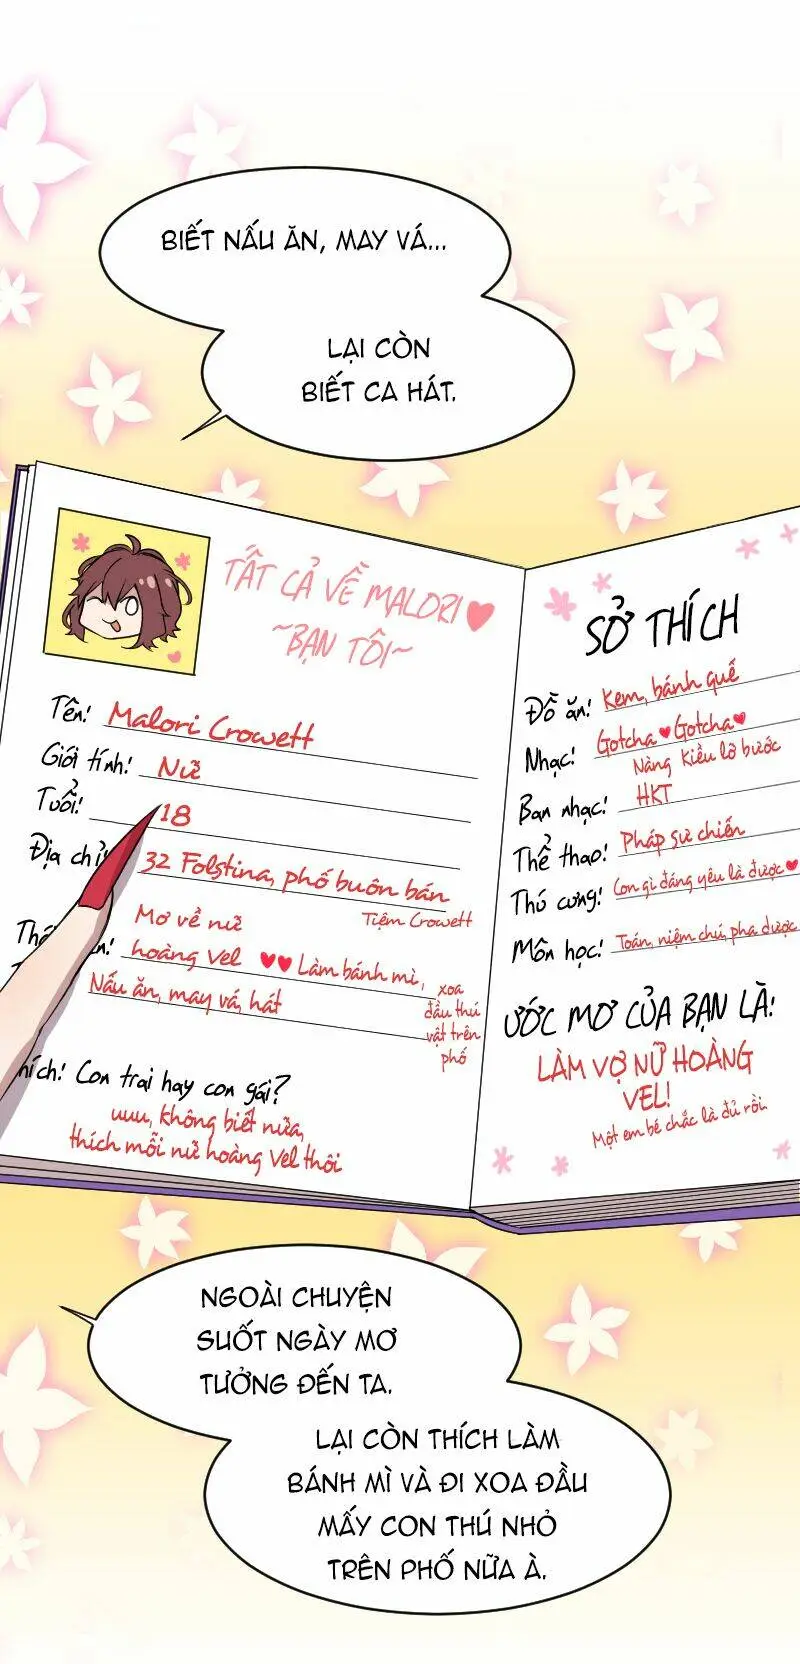 BIẾT NẤU ĂN, MAY VÁ...
LẠI CÒN
BIẾT CA HÁT.
TẤT CẢ VỀ MALORI
~BẠN TÔI~
Tên: Malori Crowett
Giới tính: Nữ
Tuổi: 18
Địa chỉ 32 Folstina, phố buôn bán
Tiệm Crowett
Mơ về nữ
hoàng Vel Làm bánh mì,
xoa
đầu thú
vật trên
phố
Nấu ăn, may vá, hát
hích: Con trai hay con gái?
uuu, không biết nữa,
thích mỗi nữ hoàng Vel thôi
SỞ THÍCH
Đồ ăn: Kem, bánh quế
Nhạc: Gotcha Gotcha
Nàng kiều lỡ bước
Ban nhạc: HKT
Thể thao: Pháp sư chiến
Thú cưng: Con gì đáng yêu là được
Môn học: Toán, niệm chú, pha dược
ƯỚC MƠ CỦA BẠN LÀ:
LÀM VỢ NỮ HOÀNG
VEL!
Một em bé chắc là đủ rồi
NGOÀI CHUYỆN
SUỐT NGÀY MƠ
TƯỞNG ĐẾN TA.
LẠI CÒN THÍCH LÀM
BÁNH MÌ VÀ ĐI XOA ĐẦU
MẤY CON THÚ NHỎ
TRÊN PHỐ NỮA À.